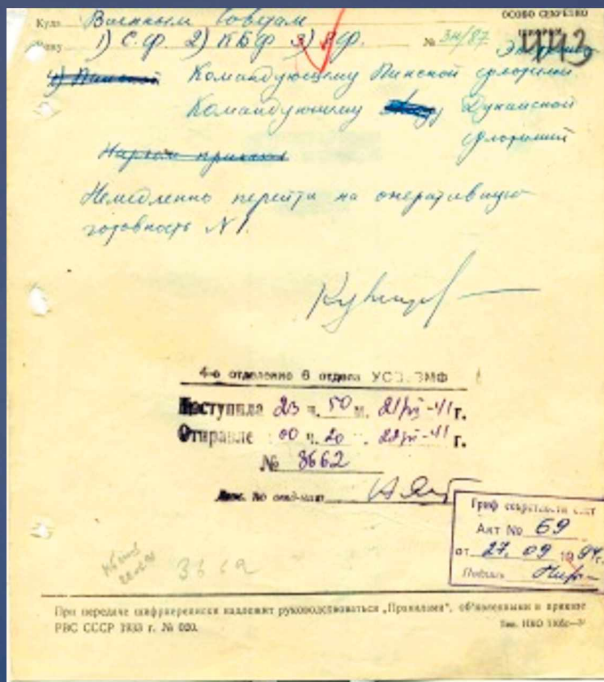 ОСОБО СЕКРЕТНО
Куда Военным Советам
Кому 1) С.Ф. 2) КБФ 3) ЧФ. № зн/87
4) Пинской Командующему Пинской флотилией
Командующему Дунайской
флотилией
Немедленно перейти на оперативную
готовность №1.
Кузнецов
4-е отделение 6 отдела ВМФ
Поступила 23 ч. 50 м. 21/VI-41 г.
Отправле 00 ч. 20 22/VI-41 г.
№ 3662
Гриф секретности снят
Акт № 69
от 27. 09 1994г.
Подпись
3662
При передаче шифрпереписки надлежит руководствоваться „Правилами", об'явленными в приказе
РВС СССР 1933 г. № 020.